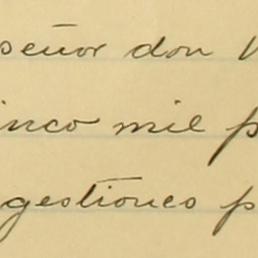 señor don
inco mil p
gestiones p